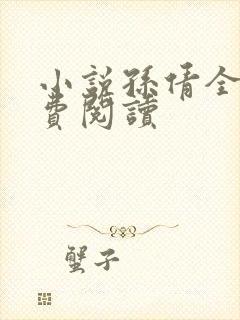 小說孫倩全
費閱讀
蟹子